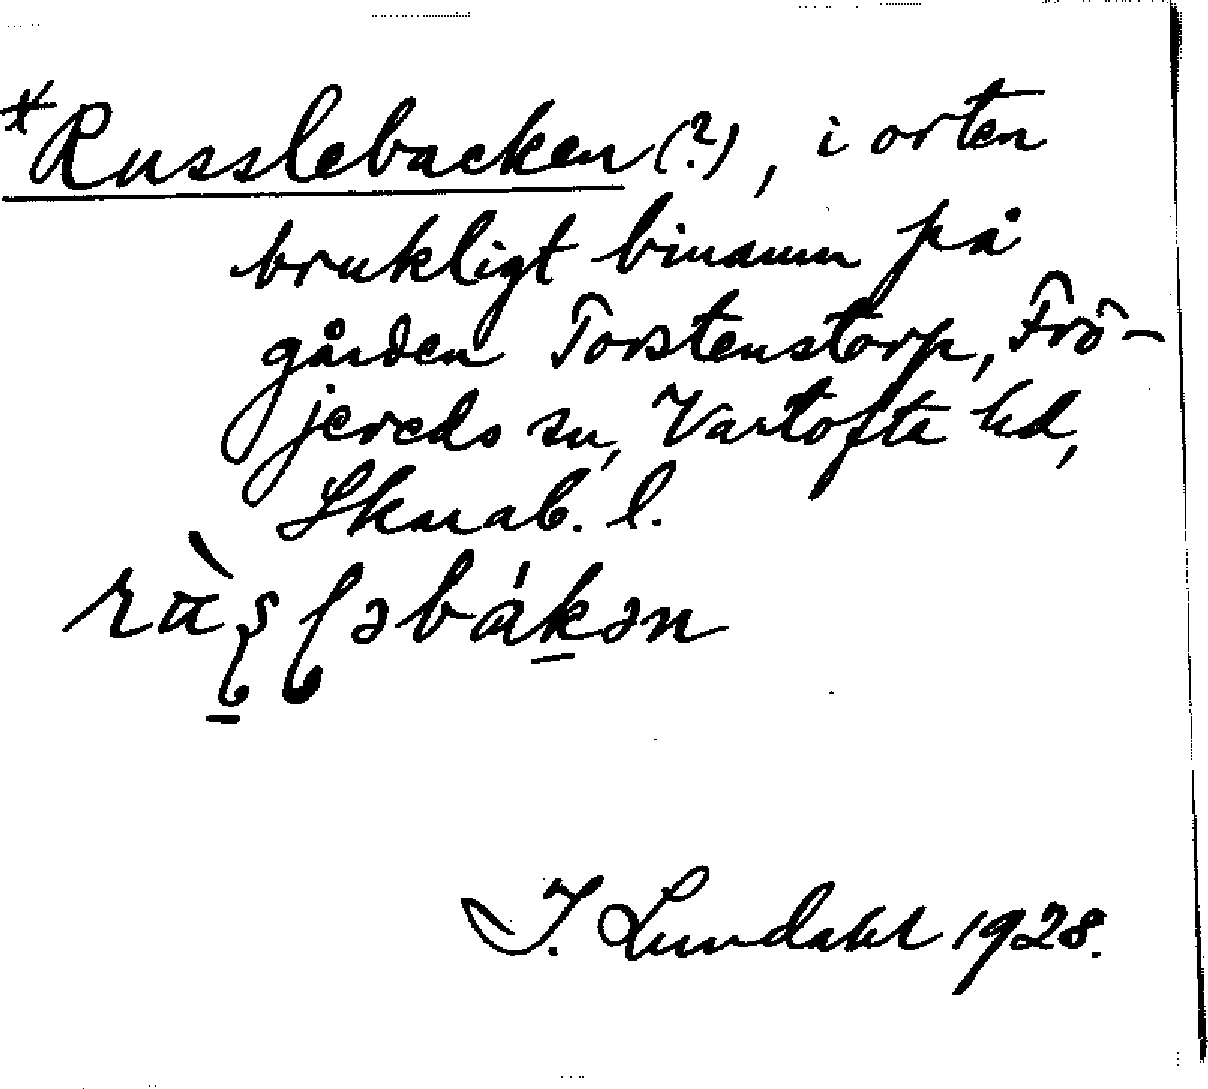 *Russlebacken (?), i orten
brukligt binamn på
gården Torstenstorp, Frö-
jereds sn, Vartofta hd,
Skarab. l.
ràʂɭəbák̠ən
I. Lundahl 1928.